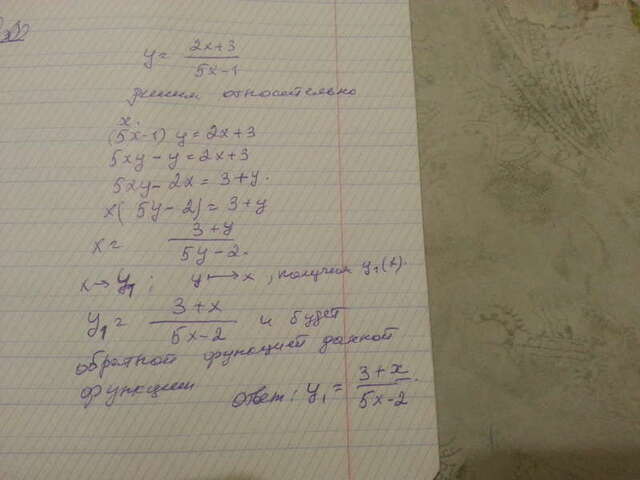 y = (2x+3)/(5x-1)
решим относительно
x.
(5x-1) y = 2x+3
5xy - y = 2x+3
5xy - 2x = 3+y.
x(5y-2) = 3+y
x = (3+y)/(5y-2).
x → y₁; y ↦ x, получим y₁(x).
y₁ = (3+x)/(5x-2) и будет
обратной функцией данной
функции
ответ: y₁ = (3+x)/(5x-2).